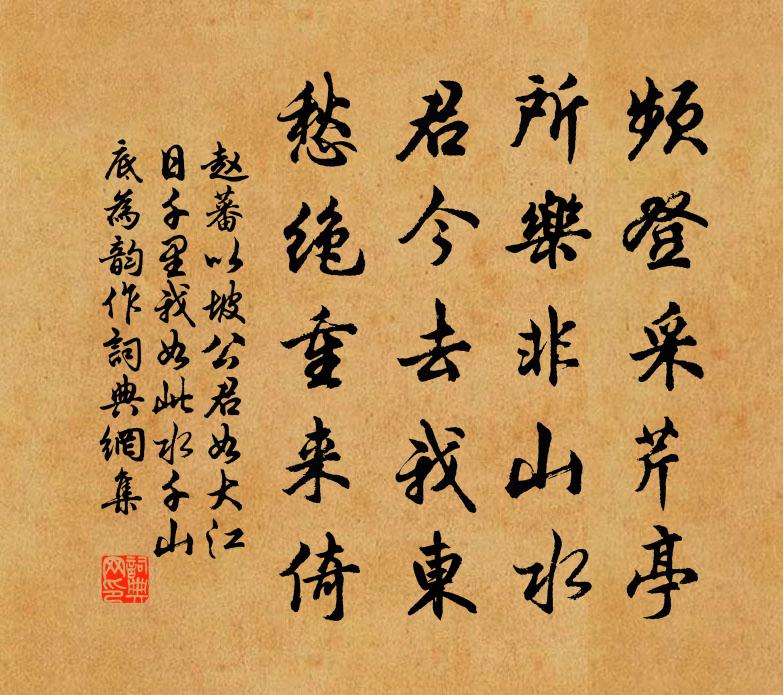 頻登采芹亭
所樂非山水
君今去我東
愁绝重来倚
赵蕃以坡公君如大江
日千里我如此水千山
底為韵作詞典網集
詞典网印